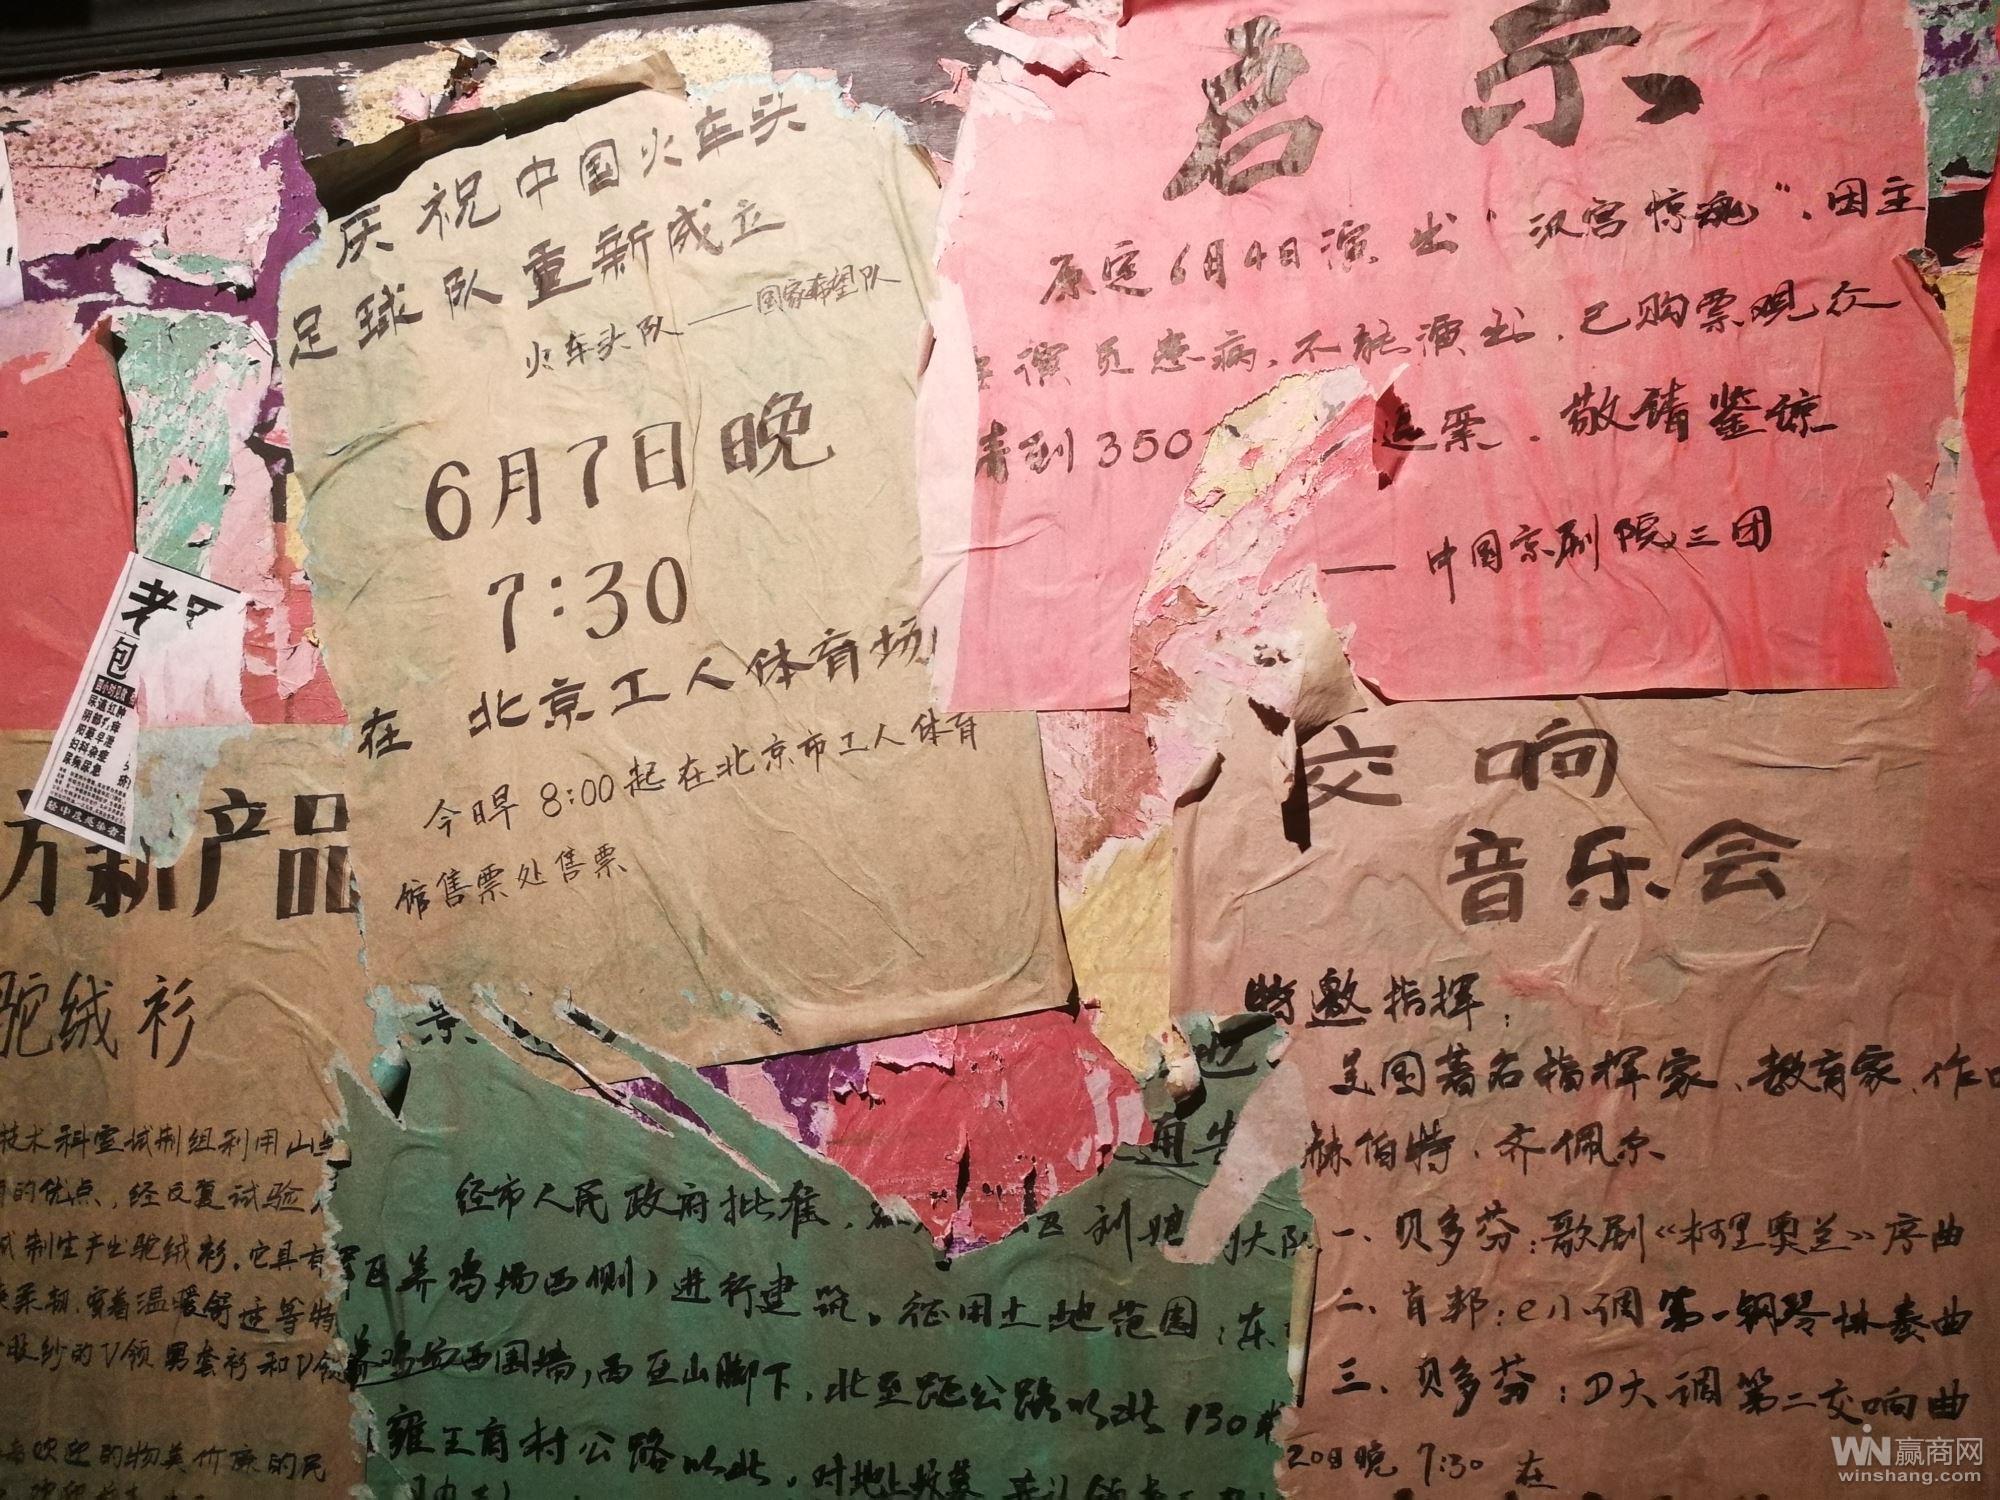 庆祝中国火车头
足球队重新成立
火车头队——国家希望队
6月7日晚
7:30
在 北京工人体育场
今日早 8:00起在北京市工人体育
馆售票处售票
启示
原定6月4日演出“汉宫惊魂”,因主
演员患病,不能演出,已购票观众
请到350
退票,敬请鉴谅
——中国京剧院三团
老
包
尿道红肿
妇科杂症
尿频尿急
方新产品
驼绒衫
技术科室试制组利用山
的优点,经反复试验
试制生产出驼绒衫,它具有
柔韧,穿着温暖舒适等特
收纱的V领男套衫和V领
欢迎的物美价廉的民
景
通告
经市人民政府批准,
利 大队
区养鸡场西侧)进行建筑。征用土地范围:东
养鸡场西围墙,西至山脚下,北至距公路以北130米
雍王府村公路以北,对地上坟墓
交响
音乐会
特邀指挥:
美国著名指挥家、教育家、作
赫伯特·齐佩尔
一、贝多芬:歌剧《柯里奥兰》序曲
二、肖邦:e小调第一钢琴协奏曲
三、贝多芬:D大调第二交响曲
20日晚 7:30 在
WIN赢商网
winshang.com